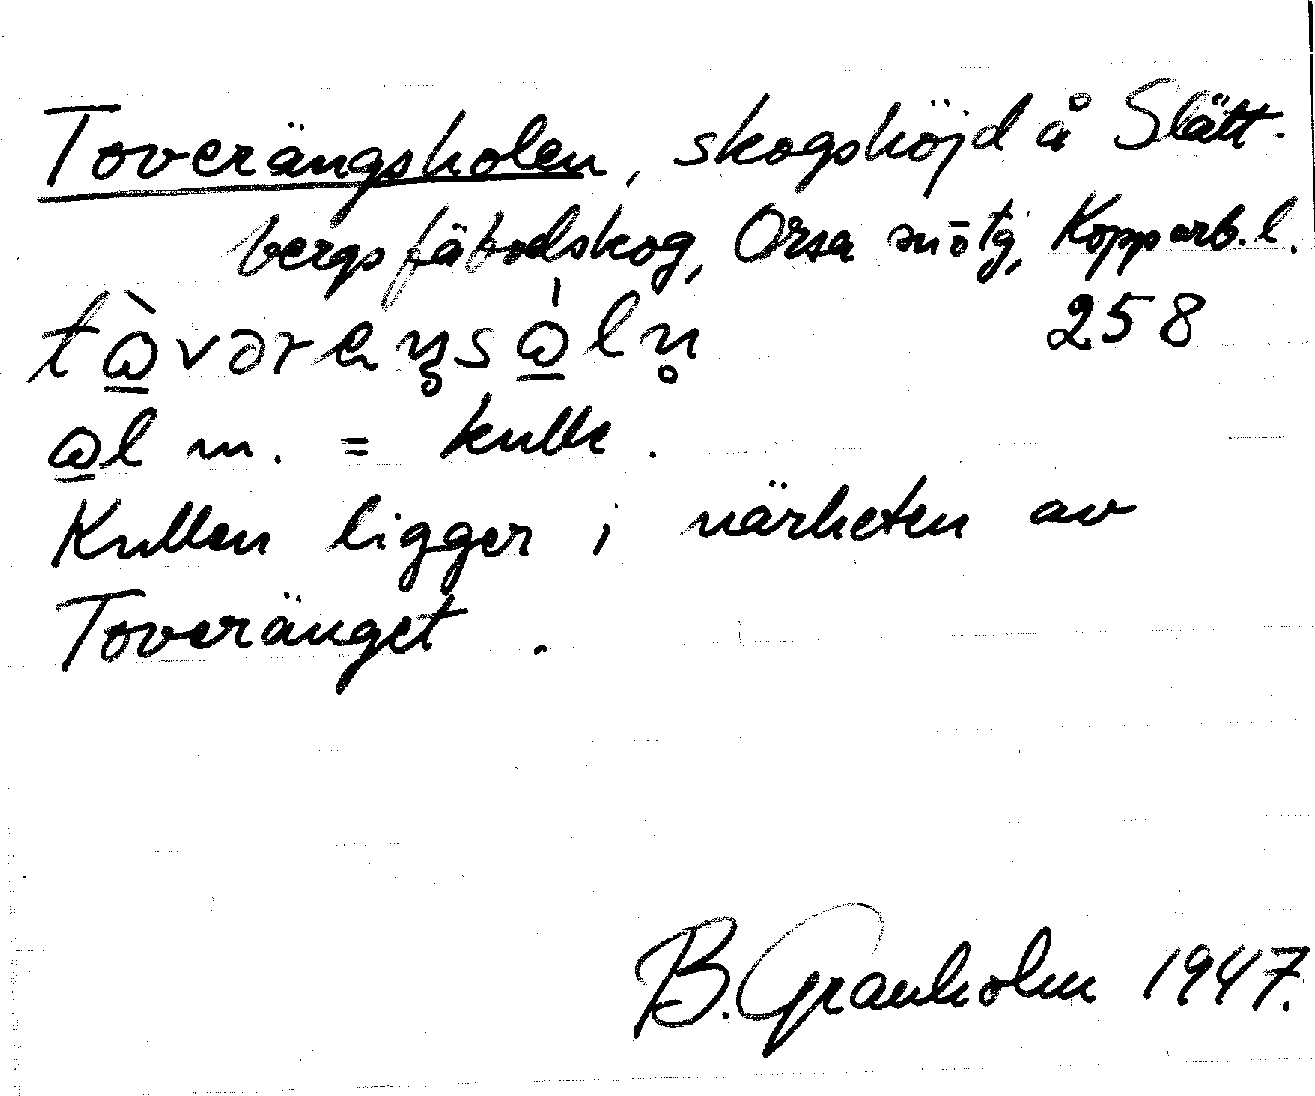 Toverängsholen, skogshöjd å Slätt-
bergs fäbodskog, Orsa snötg, Kopparb. l.
258
ɷl m. = kulle.
Kullen ligger i närheten av
Toveränget.
B. Granholm 1947.